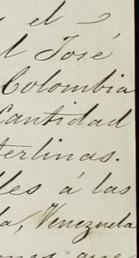 y el
l José
Colombia
Cantidad
terlinas.
les á las
la, Venezuela
ones que